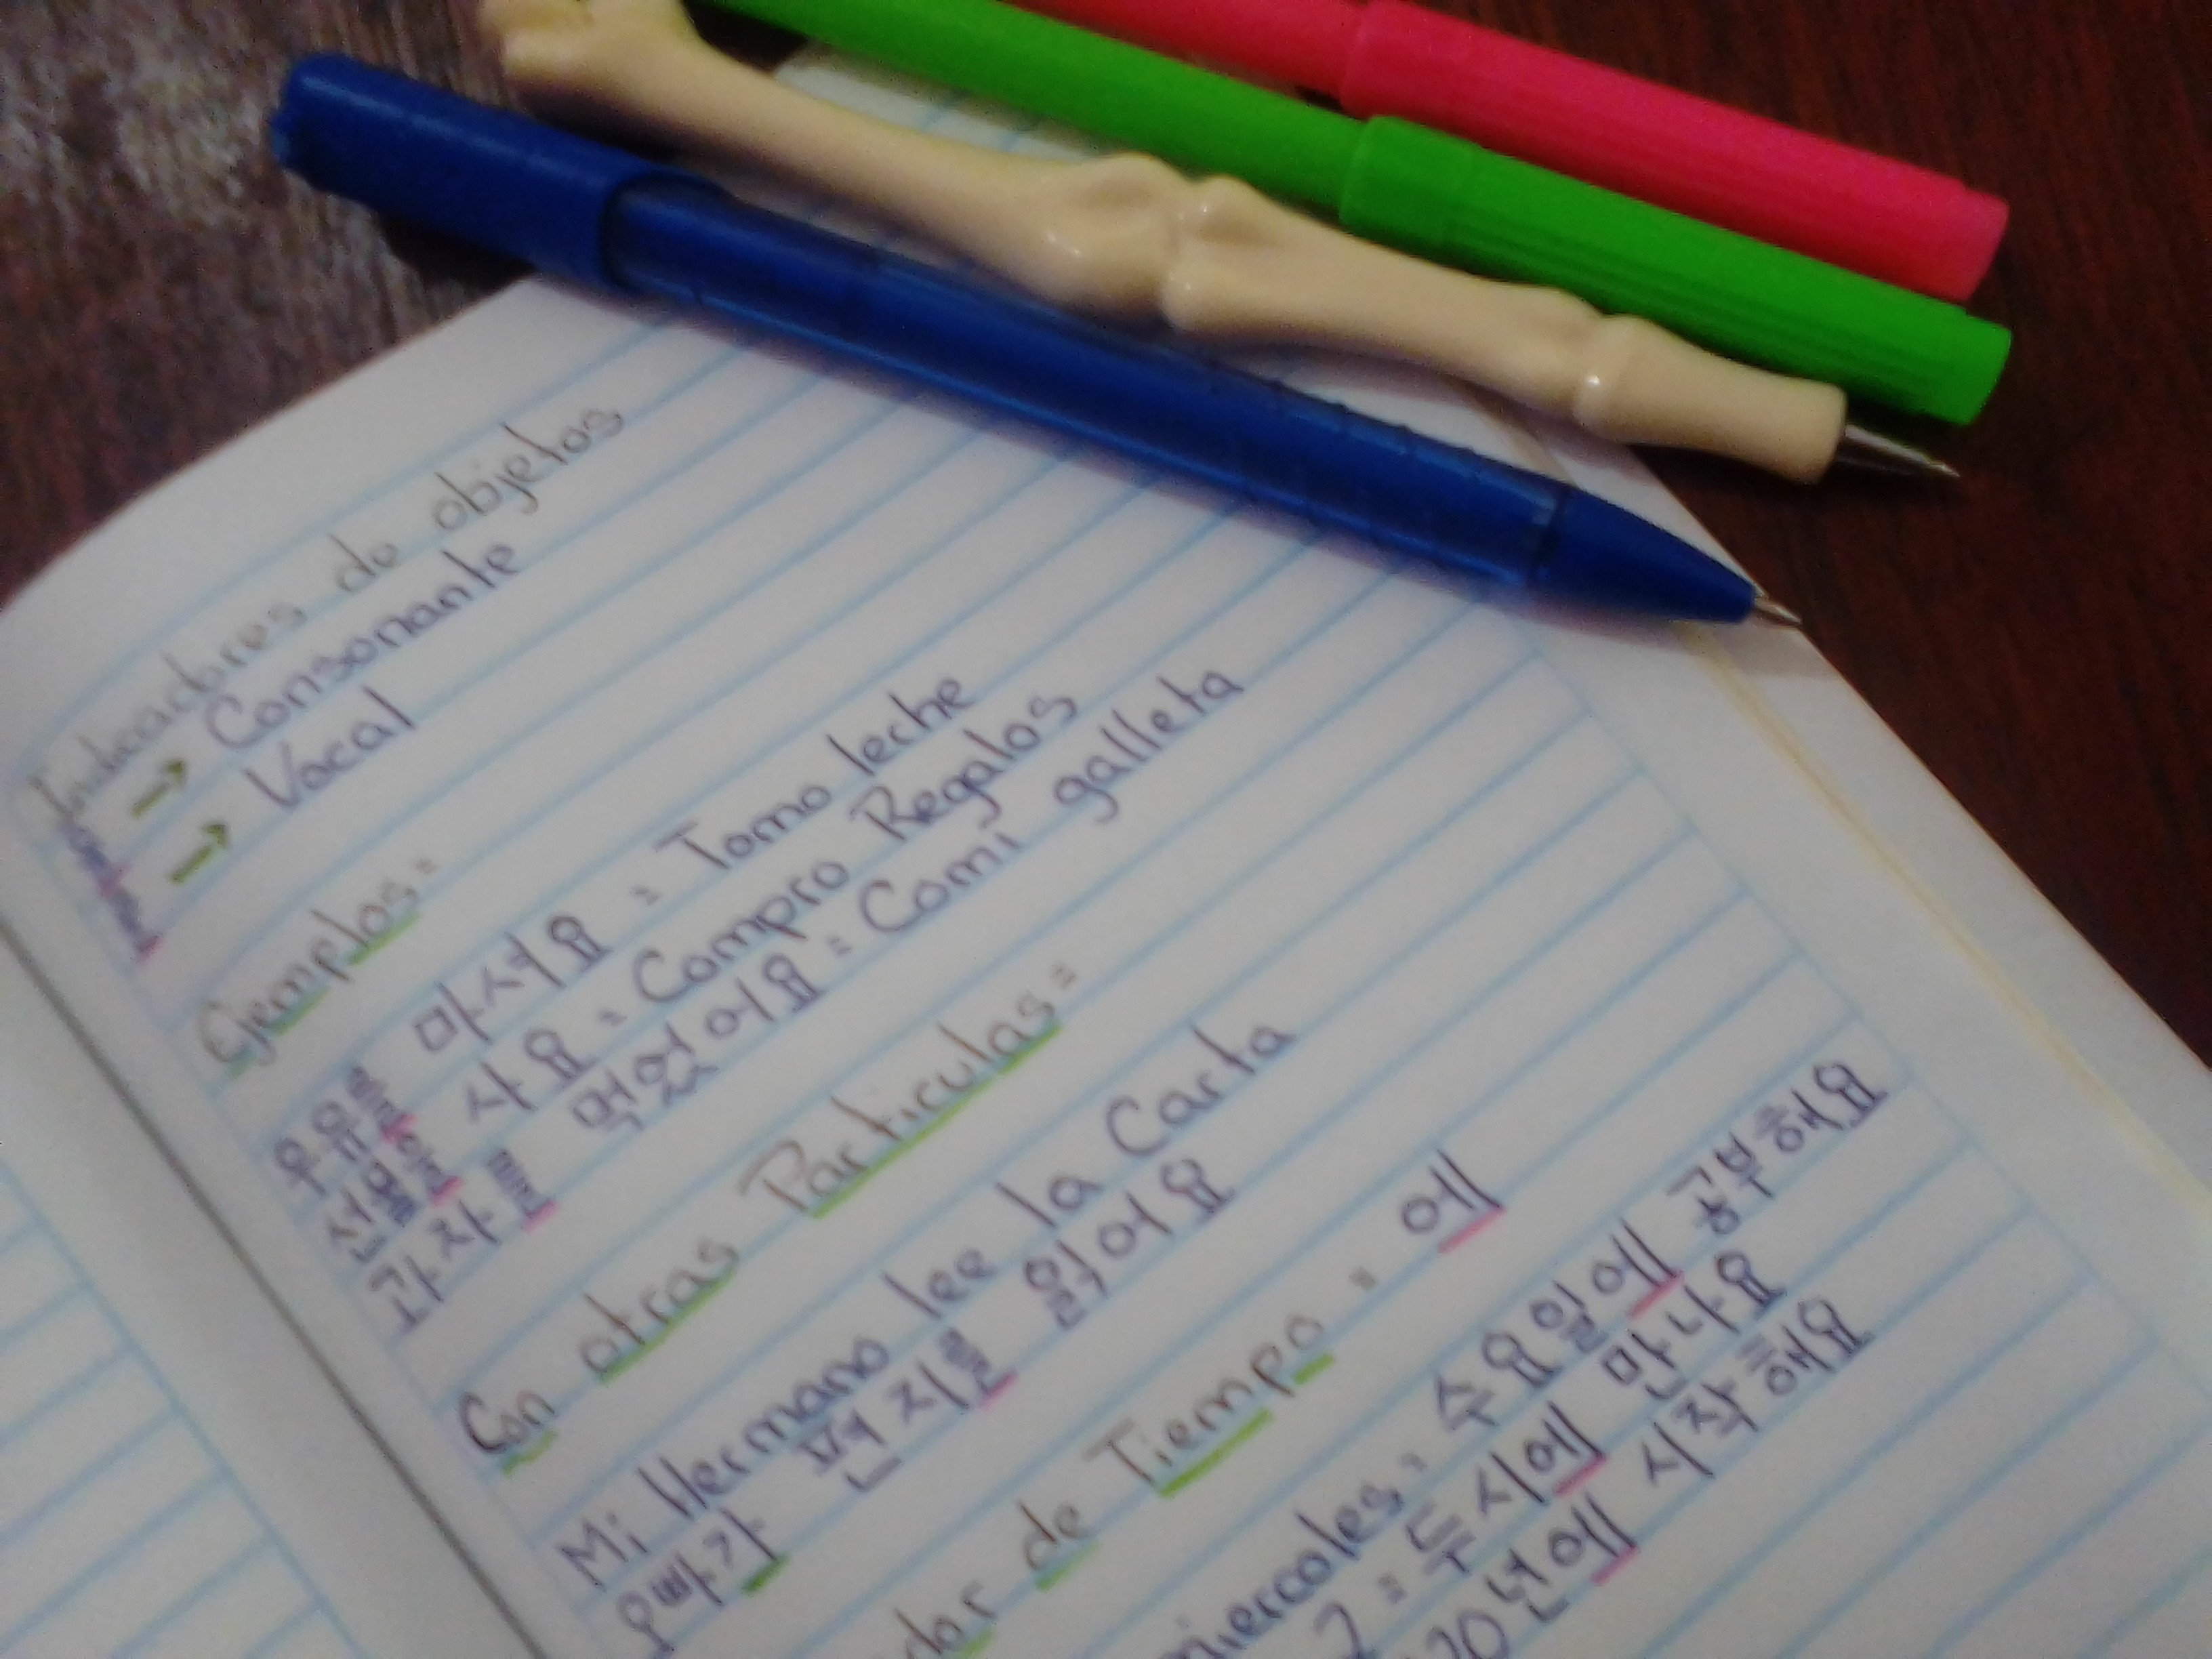 Indicadores de objetos
을 → Consonante
를 → Vocal
Ejemplos:
우유를 마셔요 = Tomo leche
선물을 사요 = Compro Regalos
과자를 먹었어요 = Comi galleta
Con otras Particulas =
Mi Hermano lee la Carta
오빠가 편지를 읽어요
de Tiempo = 에
miercoles = 수요일에 공부해요
2 = 두시에 만나요
20년에 시작해요